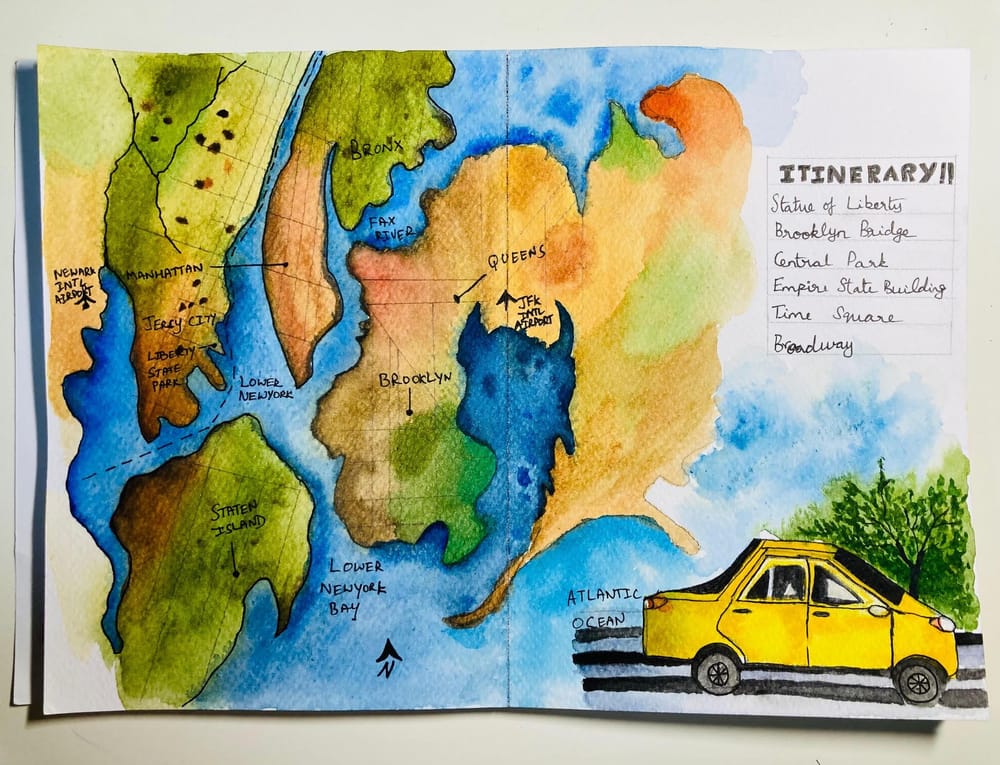 BRONX
FAX
RIVER
MANHATTAN
NEWARK
INTL
AIRPORT
QUEENS
JFK
INTL
AIRPORT
JERSY CITY
LIBERTY
STATE
PARK
LOWER
NEWYORK
BROOKLYN
STATEN
ISLAND
LOWER
NEWYORK
BAY
N
ATLANTIC
OCEAN
ITINERARY!!
Statue of Liberty
Brooklyn Bridge
Central Park
Empire State Building
Time Square
Broadway